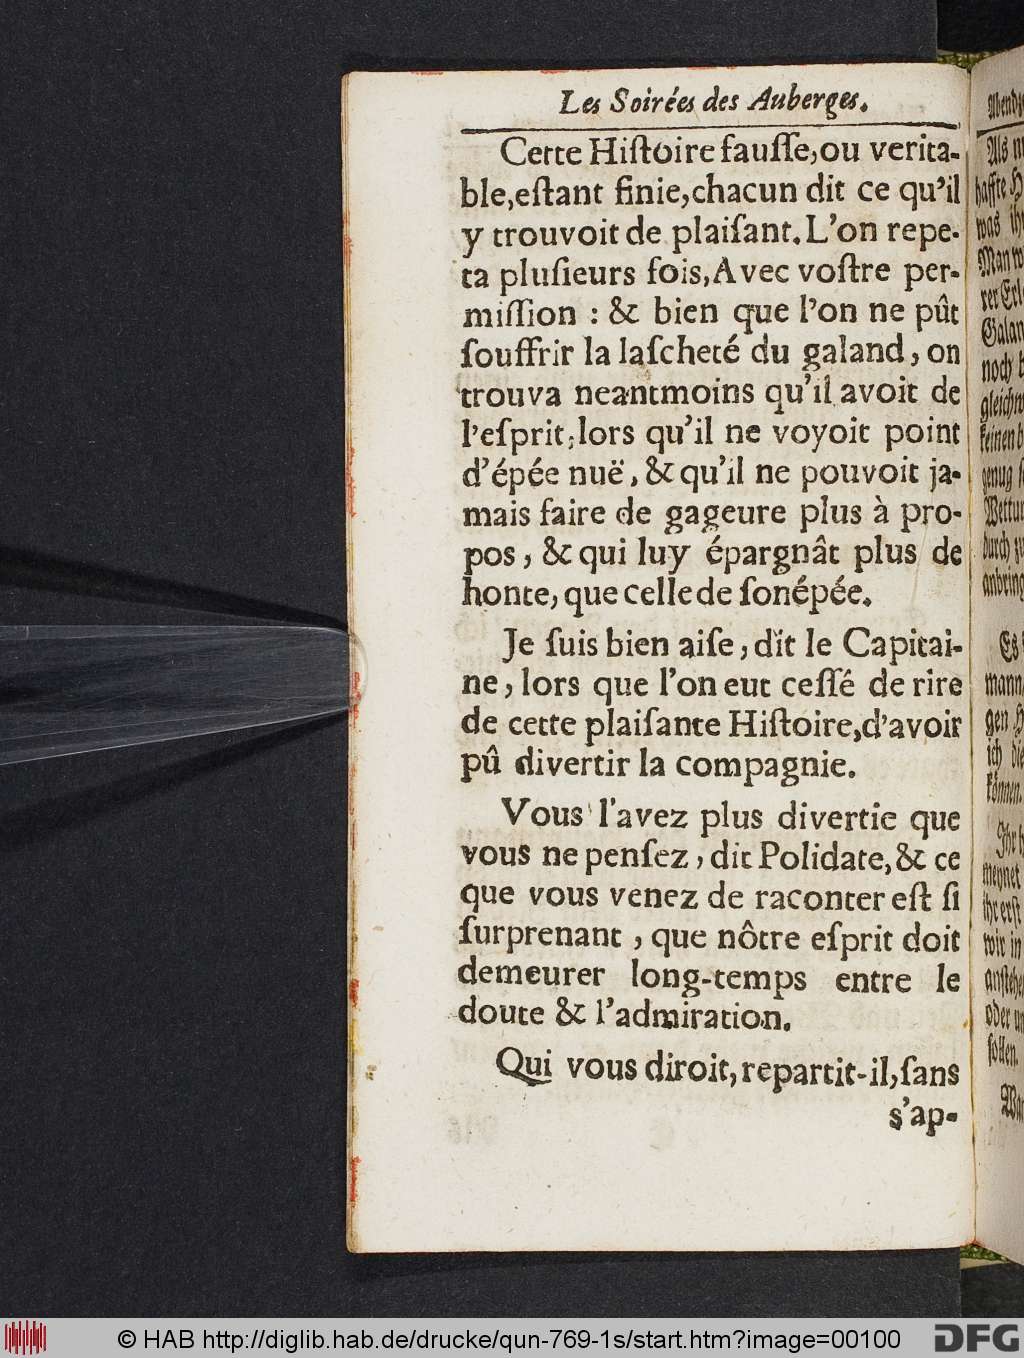 Les Soirées des Auberges.
Cette Hiſtoire fauſſe, ou verita-
ble, eſtant finie, chacun dit ce qu'il
y trouvoit de plaiſant. L'on repe-
ta pluſieurs fois, Avec voſtre per-
miſſion : & bien que l'on ne pût
ſouffrir la laſcheté du galand, on
trouva neantmoins qu'il avoit de
l'eſprit, lors qu'il ne voyoit point
d'épée nuë, & qu'il ne pouvoit ja-
mais faire de gageure plus à pro-
pos, & qui luy épargnât plus de
honte, que celle de ſon épée.
Je ſuis bien aiſe, dit le Capitai-
ne, lors que l'on eut ceſſé de rire
de cette plaiſante Hiſtoire, d'avoir
pû divertir la compagnie.
Vous l'avez plus divertie que
vous ne penſez, dit Polidate, & ce
que vous venez de raconter eſt ſi
ſurprenant, que nôtre eſprit doit
demeurer long-temps entre le
doute & l'admiration.
Qui vous diroit, repartit-il, ſans
s'ap-
Als
haffte
was
Man
rer
noch
keinen
genug
durch
Es
mann
gen
ich die
können.
Ihr
meynet
ihr erſt
wir in
oder
ſollen.
© HAB http://diglib.hab.de/drucke/qun-769-1s/start.htm?image=00100
DFG